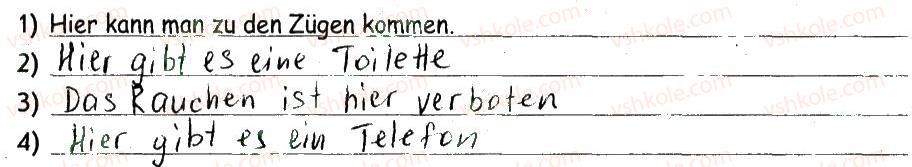 1) Hier kann man zu den Zügen kommen.
2) Hier gibt es eine Toilette
3) Das Rauchen ist hier verboten
4) Hier gibt es ein Telefon